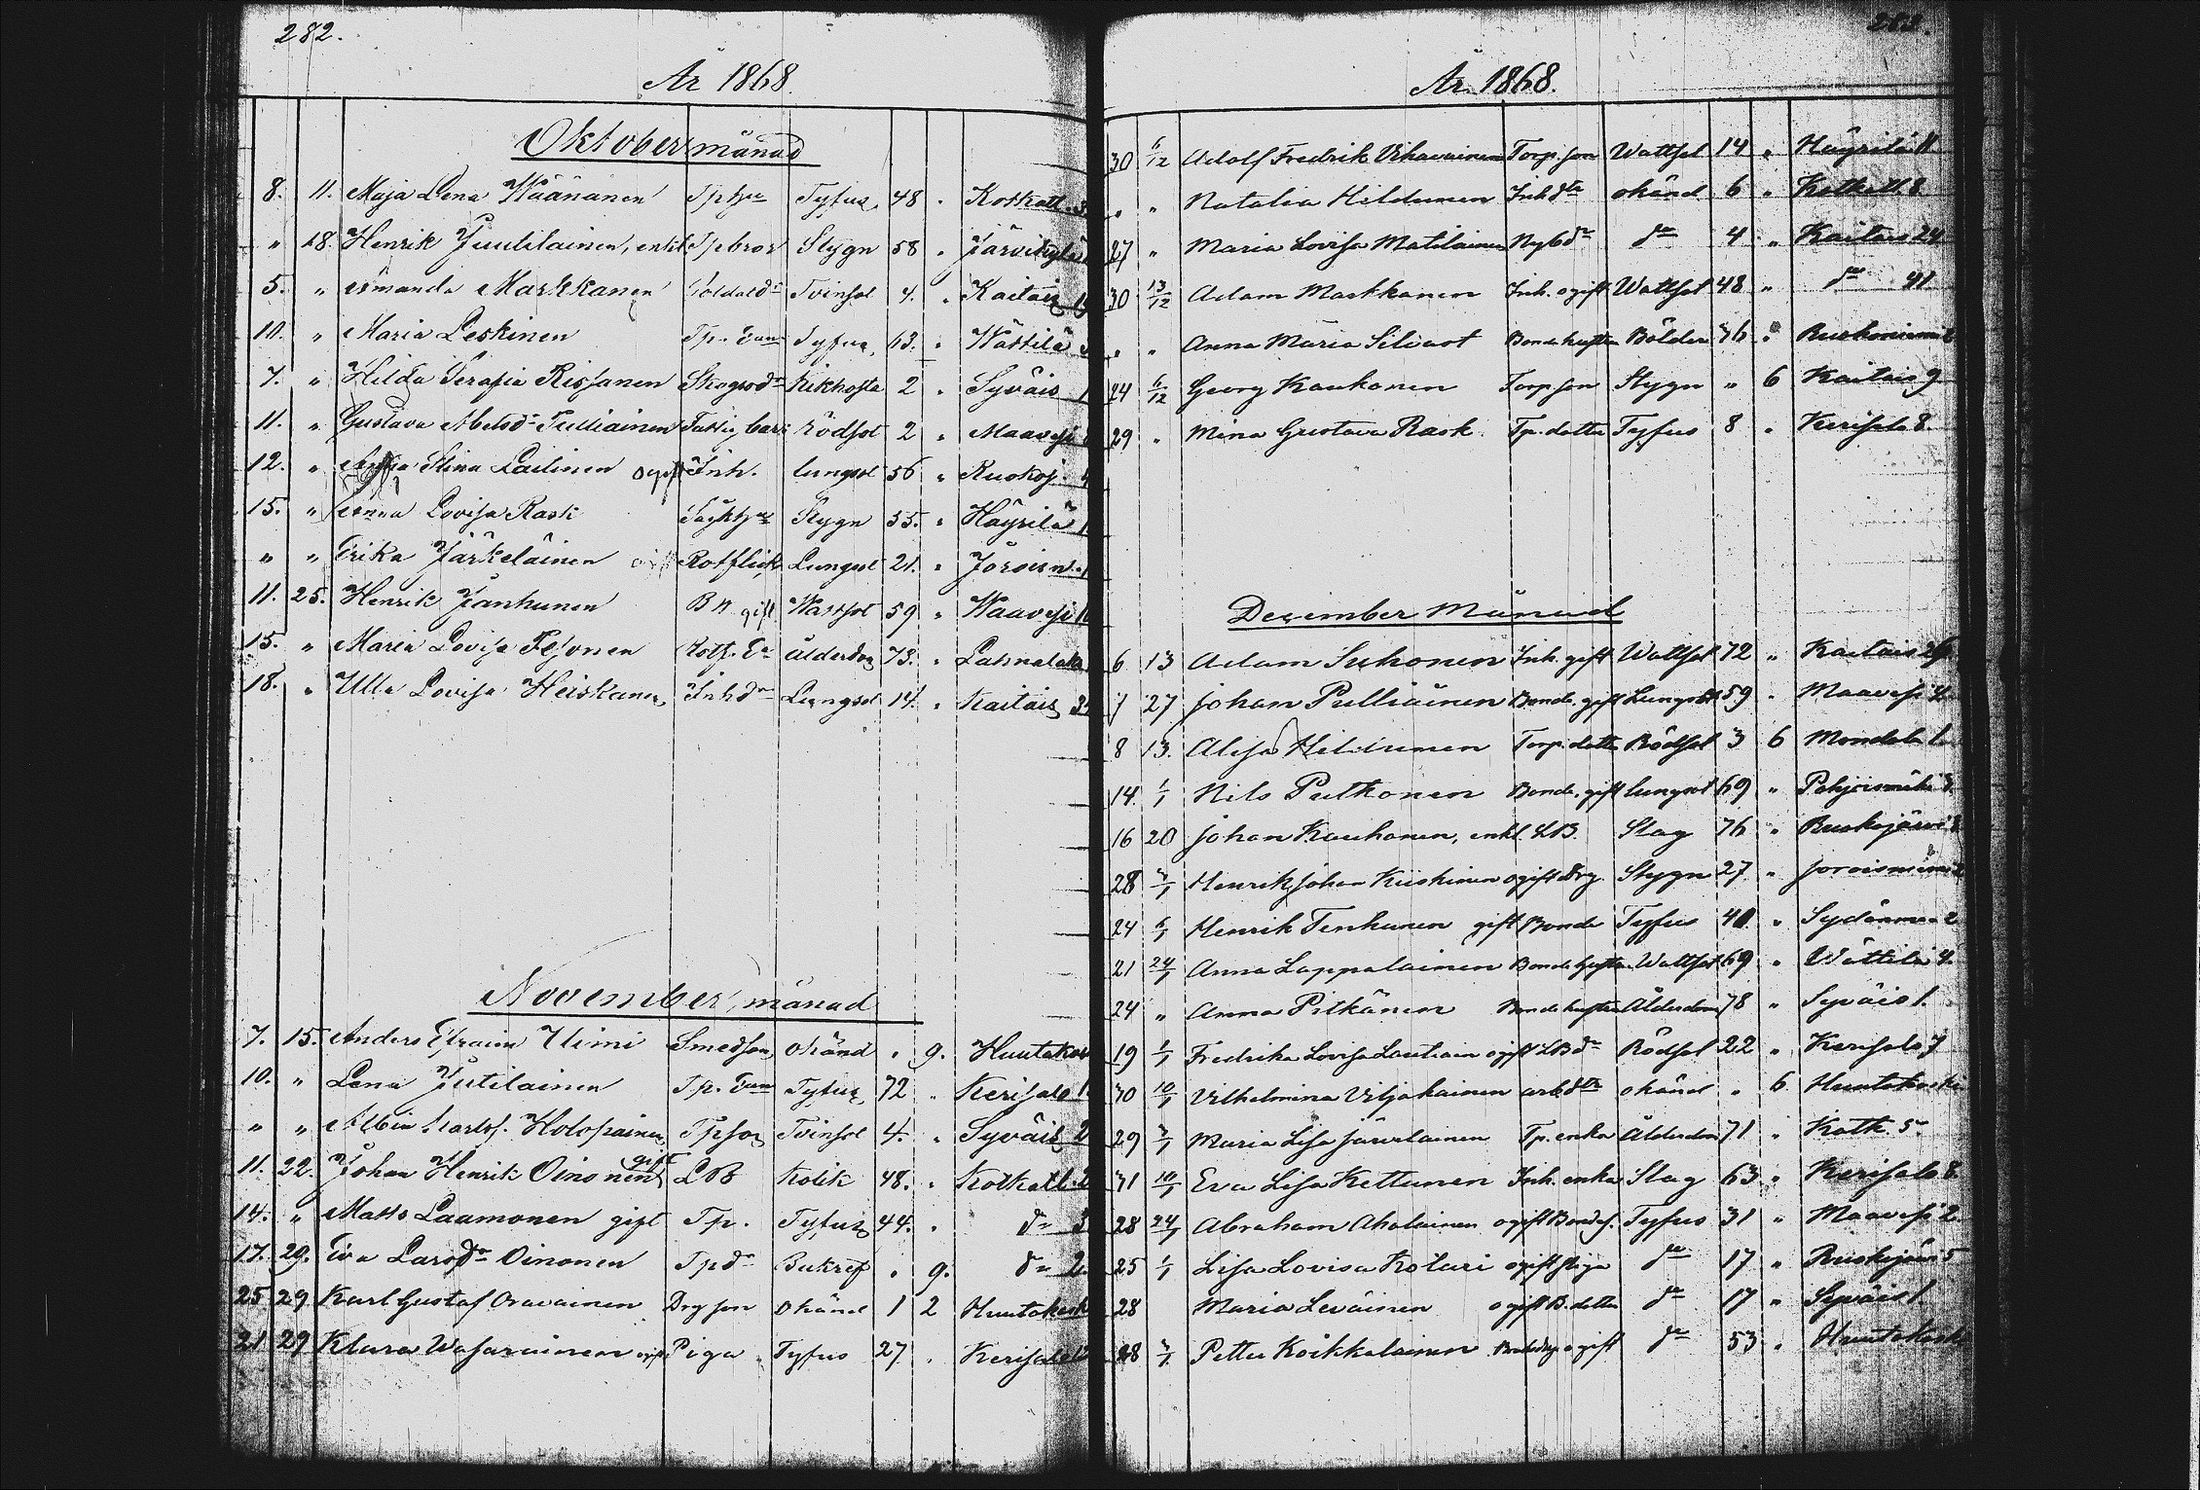 282.
År 1868.
Oktober månad
8. 11. Maja Lena Wäänänen Tphu Tyfus 48 " Kotkatl. 3
" 18. Henrik Juutilainen, enkl Tpbror Stygn 58 " Järvikylä
5. " Amanda Markkanen Soldatdr Tvinsot 4. " Kaitais
10. " Maria Leskinen Tp. Tyfus 63. " Wättilä
7. " Hilda Serafia Rissanen Kikhosta 2 " Syväis 1
11. " Gustava Abelsdr Pulliainen Rödsot 2 " Maavesi
12. " Stina Laitinen ogift Inh. lungsot 56 " Ruokoj.
15. " Anna Lovisa Rask Stygn 55. " Häyrilä
" " Erika Järkeläinen Rotflick Lungsot 21. " Joroisn.
11. 25. Henrik Janhunen gift Wattsot 59 " Maavesi
15. " Maria Lovisa Pesonen Rotf. Ea ålderdom 73. "
18. " Ulla Lovisa Heiskanen Inhdr Lungsot 14. " Kaitais
November månad
7. 15. Anders Efraim Uimi Smedson okänd " 9. Huutokos
10. " Lena Jutilainen Tp. Tyfus 72 " Kerisalo 1
" " Albin Karlss. Holopainen Tpson Tvinsot 4. " Syväis 2
11. 22. Johan Henrik Oinonen gift LB Kolik 48. " Kotkatl. 2
14. " Matts Laamonen gift Tp. Tyfus 44. " do 3
17. 29. Eva Larsdr Oinonen Tpdr Bukref " 9. do 2.
25 29 Karl Gustaf Oravainen Drgson okänd 1 2 Huutokosk
21 29 Klara Wasarainen ogift Piga Tyfus 27 " Kerisalo 12
283.
År 1868.
30 6/12 Adolf Fredrik Vihavainen Torp.son Wattsot 14 " Häyrilä 11
" " Natalia Hildunen Inh dtr okänd 6 " Kotkatl. 8
27 " Maria Lovisa Matilainen Nyb dr do 4 " Kaitais 24
30 13/12 Adam Markkanen Inh. ogift Wattsot 48 " do 41
" " Anna Maria Silvast Bondehustru Bölder 76 "
24 6/12 Georg Kaukonen Torpson Stygn " 6 Kaitais 9
29 " Mina Gustava Rask Tp. dotter Tyfus 8 " Kerisalo 8.
December Månad
6 13 Adam Suhonen Inh. gift Wattsot 72 " Kaitais 26
7 27 Johan Pulliainen Bonde. gift Lungsot 59 " Maavesi 4
8 13. Alisa Hildunen Torp. dotter Rödsot 3 6 Mondola 1
14. 1/1 Nils Putkonen Bonde. gift lungsot 69 " Pohjoismäki 3
16 20 Johan Kauhanen, enkl. LB. Slag 76 " Ruokojärvi 8
28 Henrik Johan Kiiskinen ogift Drg Stygn 27 " Joroisniemi 2
24 6/1 Henrik Tenhunen gift Bonde Tyfus 40 " Sydänmaa 2
21 24/1 Anna Lappalainen Bondehustru Wattsot 69 " Wättilä 4.
24 " Anna Pitkänen Bondehustru Ålderdom 78 " Syväis 1.
19 1/1 Fredrika Lovisa Lautiain ogift LB dr Rödsot 22 " Kerisalo 7
30 10/1 Vilhelmina Viljakainen arb dtr okänd " 6 Huutokoski
29 Maria Lisa Järvelainen Tp. enka Ålderdom 71 " Kotk. 5
31 10/1 Eva Lisa Kettunen Inh. enka Slag 63 " Kerisalo 8.
28 24/1 Abraham Aholainen ogift Bondes. Tyfus 31 " Maavesi 2
25 1/1 Lisa Lovisa Kolari ogift piga do 17 " Ruokojärvi 5
28 Maria Leväinen ogift B. dotter do 17 " Syväis 1.
28 Petter Koikkalainen ogift do 53 " Huutokosk